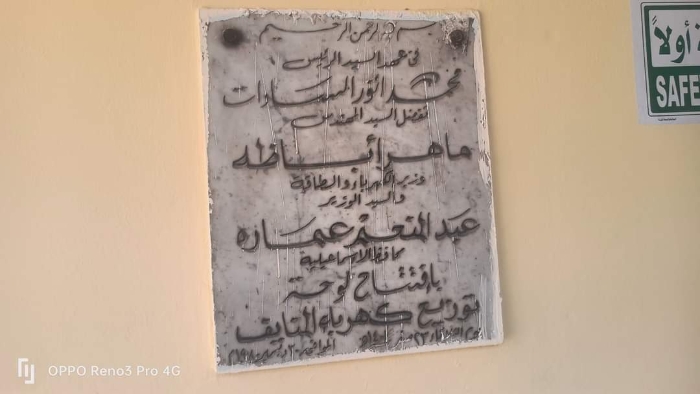 بسم الله الرحمن الرحيم
في عهد السيد الرئيس
محمد أنور السادات
تفضل السيد المهندس
ماهر أباظه
وزير الكهرباء والطاقة
والسيد الوزير
عبد المنعم عماره
محافظ الاسماعيلية
بإفتتاح لوحة
توزيع كهرباء المتايف
يوم
صفر
الموافق
أولاً
SAFE
OPPO Reno3 Pro 4G